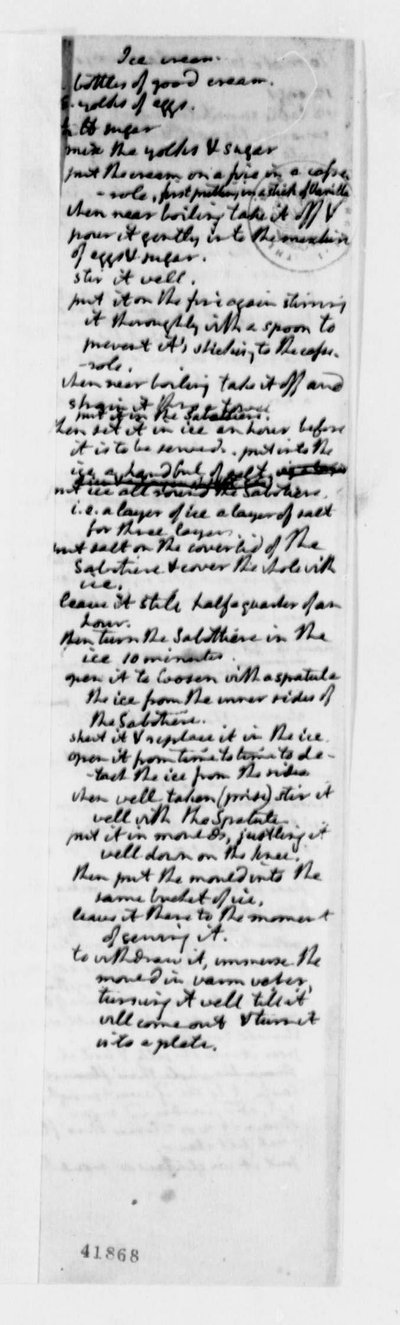 Ice cream.
bottles of good cream.
yolks of eggs.
lb sugar
mix the yolks & sugar
put the cream on a fire in a casse
-role, first putting in a stick of Vanilla
when near boiling take it off &
pour it gently into the mixture
of eggs & sugar.
stir it well.
put it on the fire again stirring
it thoroughly with a spoon to
prevent it's sticking to the casse-
-role.
when near boiling take it off and
strain it thro' a towel
put it in the Sabottiere.
then set it in ice an hour before
it is to be served. put into the
ice a handful of salt
put ice all round the Sabottiere.
i.e. a layer of ice a layer of salt
for three layers.
put salt on the coverlid of the
Sabotiere & cover the whole with
ice.
leave it still half a quarter of an
hour.
then turn the Sabottiere in the
ice 10 minutes
open it to loosen with a spatula
the ice from the inner sides of
the Sabotiere.
shut it & replace it in the ice
open it from time to time to de-
-tach the ice from the sides
when well taken (prise) stir it
well with the Spatula.
put it in moulds, justling it
well down on the knee.
then put the mould into the
same bucket of ice.
leave it there to the moment
of serving it.
to withdraw it, immerse the
mould in warm water,
turning it well till it
will come out & turn it
into a plate.
41868